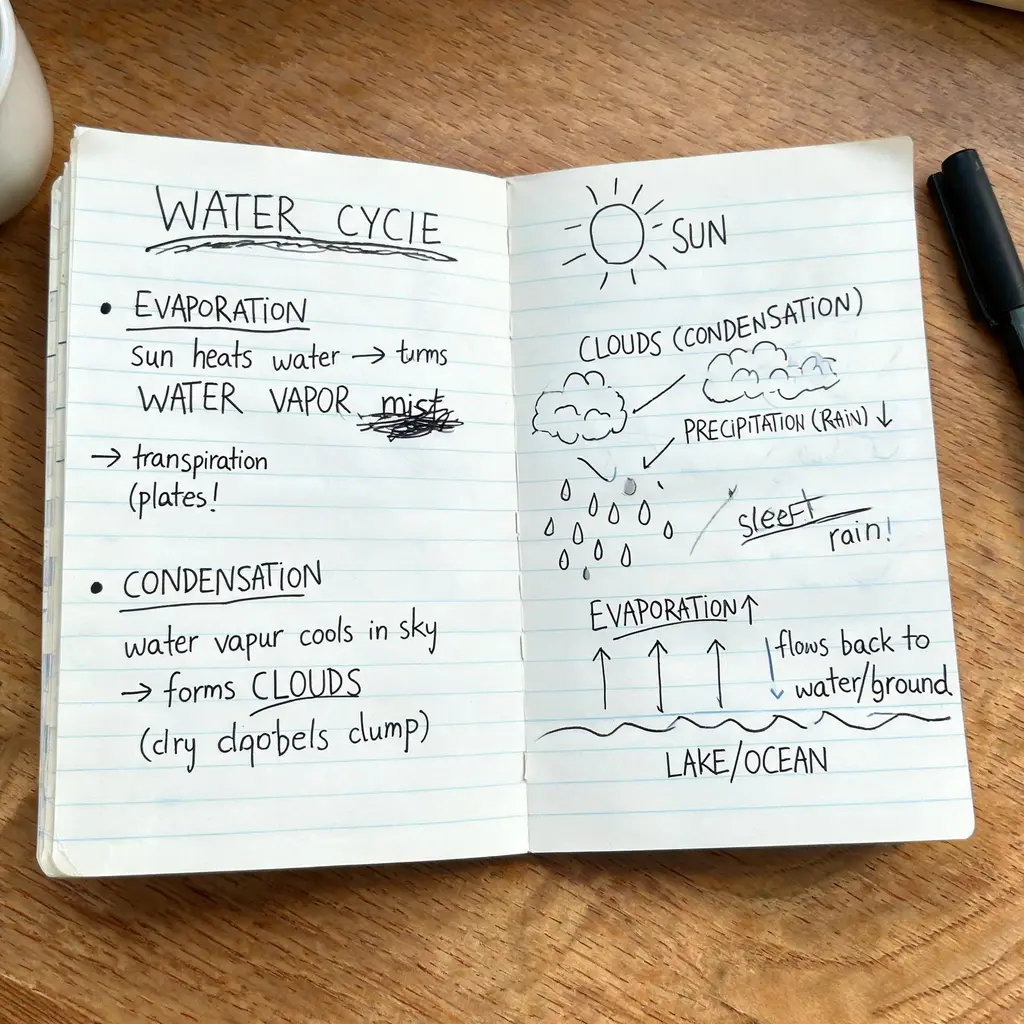 WATER CYCLE
• EVAPORATION
sun heats water → turns
WATER VAPOR mist
→ transpiration
(plates!
• CONDENSATION
water vapur cools in sky
→ forms CLOUDS
(dry dqobels clump)
SUN
CLOUDS (CONDENSATION)
PRECIPITATION (RAIN) ↓
sleeft
rain!
EVAPORATION ↑
flows back to
water/ground
LAKE/OCEAN